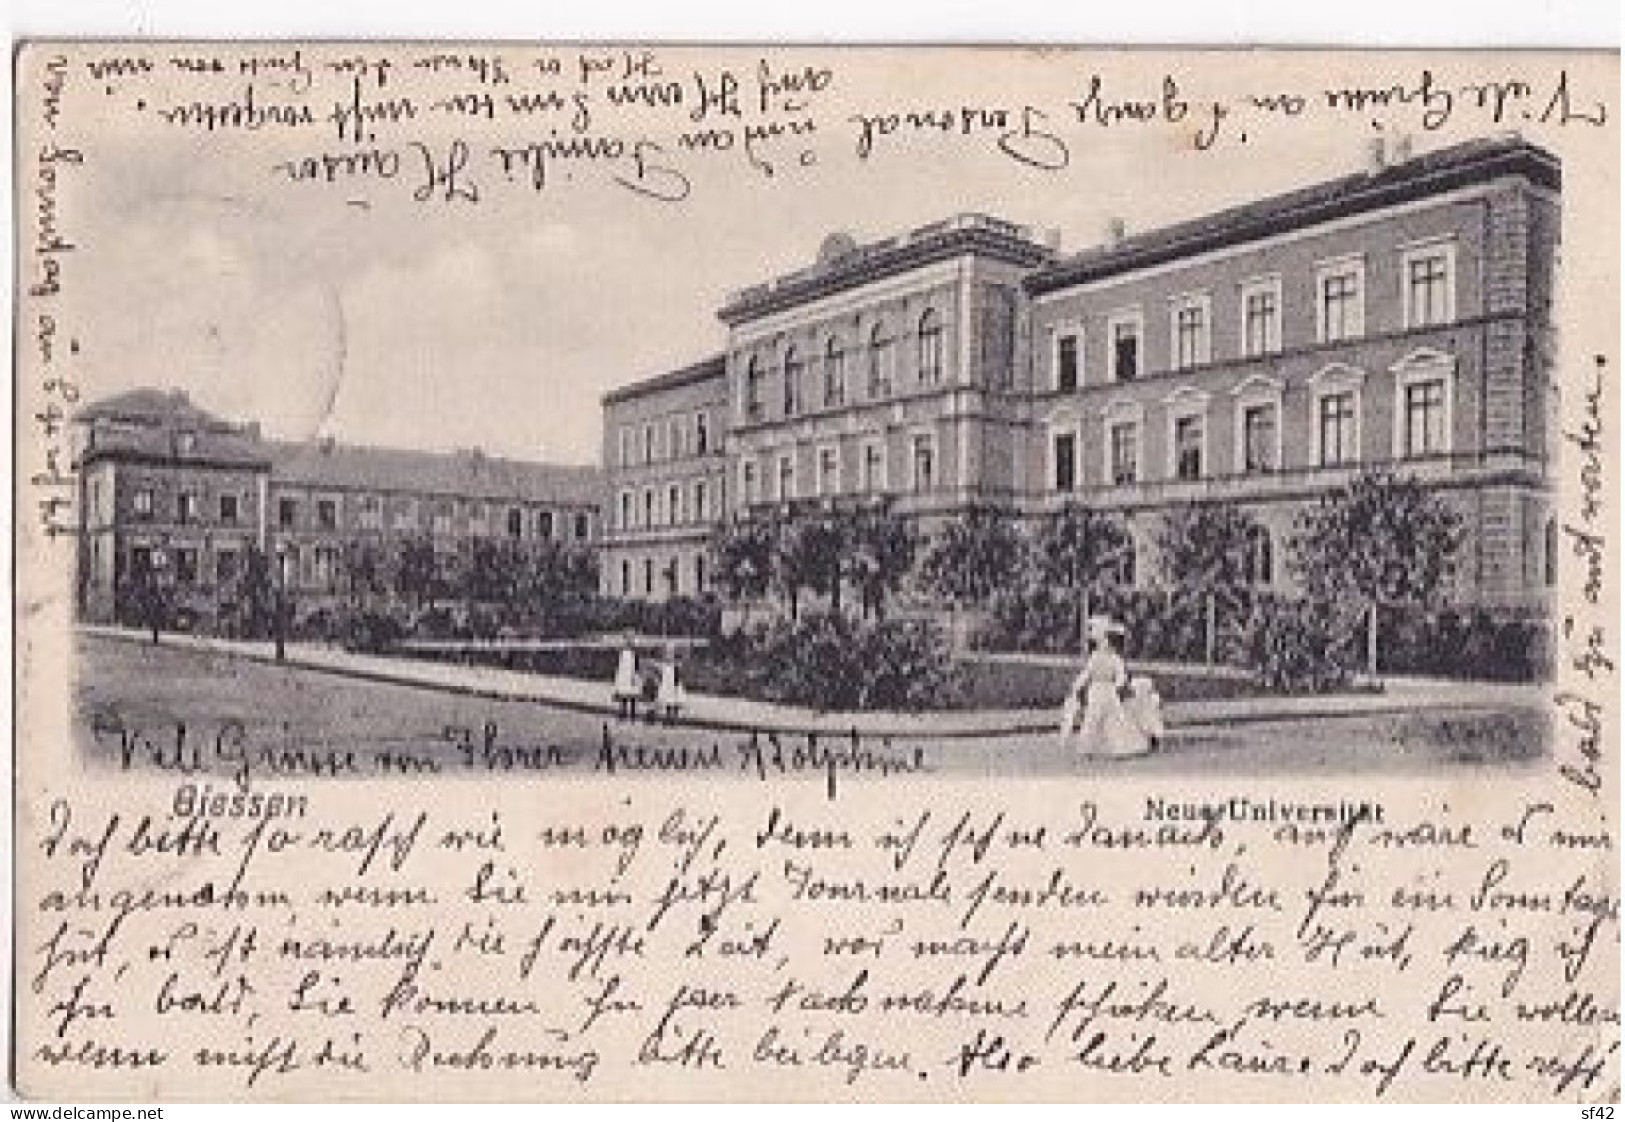 Viele Grüsse an's ganze Personal
und an Familie Häuser
auf
nicht vergessen.
den Gruss von mir
Viele Grüsse von Ihrer treuen Adolphine
Giessen
Neue Universität
Doch bitte so rasch wie möglich, denn ich sehne danach, auch wäre es mir
angenehm wenn Sie mir jetzt Journale senden würden für ein Sonntags
hut, es ist nämlich die höchste Zeit, was macht mein alter Hut, krieg ich
ihn bald, Sie können ihn per Nachnahme schicken wenn Sie wollen
wenn nicht die Rechnung bitte beilegen. Also liebe Laura doch bitte recht
bald zu antworten.
delcampe.net
sf42